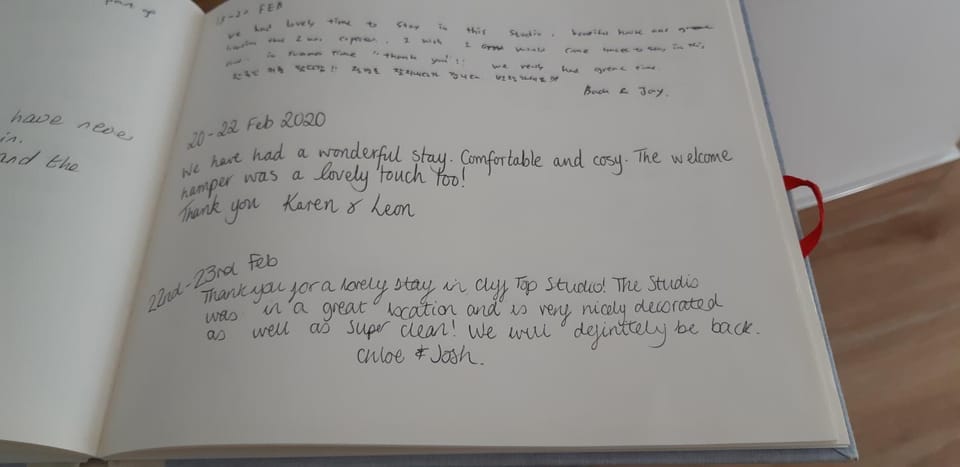 have never
in.
and the
15-20 FEB
We had lovely time to stay in this studio. beautiful house and great
location that I was expected. I wish I would come back to stay in this
in Summer time "thank you"!! we really had great time.
& Jay.
20-22 Feb 2020
We have had a wonderful stay. Comfortable and cosy. The welcome
hamper was a lovely touch too!
Thank you Karen & Leon
22nd-23rd Feb
Thank you for a lovely stay in Cliff Top Studio! The Studio
was in a great location and is very nicely decorated
as well as super clean! We will definitely be back.
Chloe & Josh.